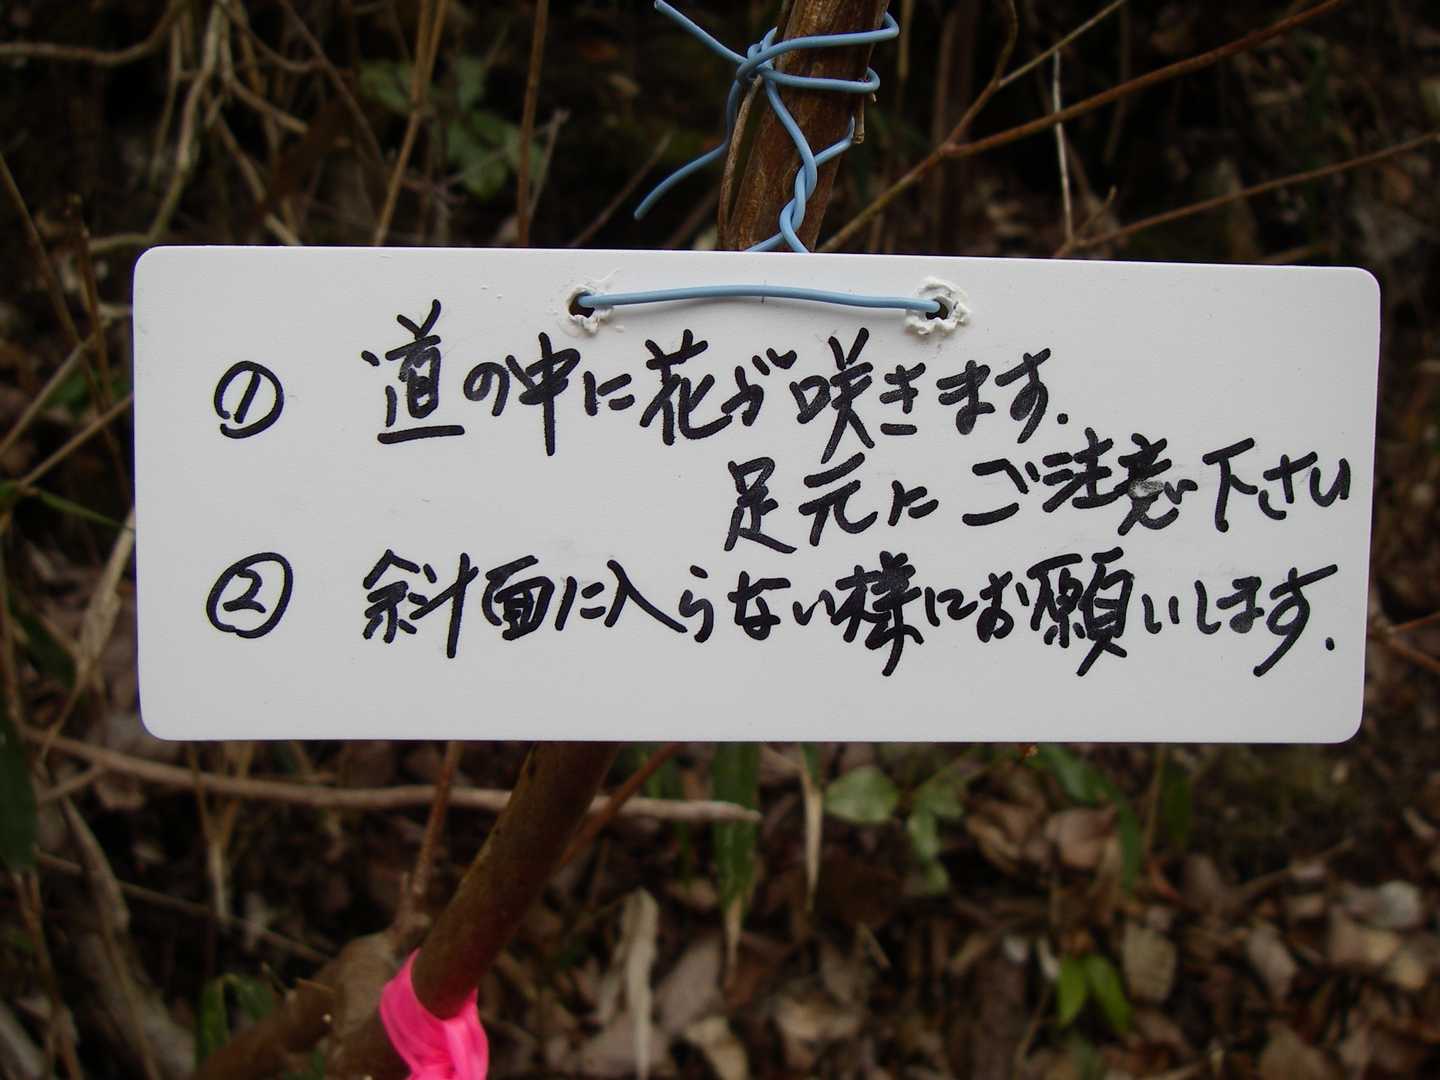 ① 道の中に花が咲きます.
足元にご注意下さい
② 斜面に入らない様にお願いします.